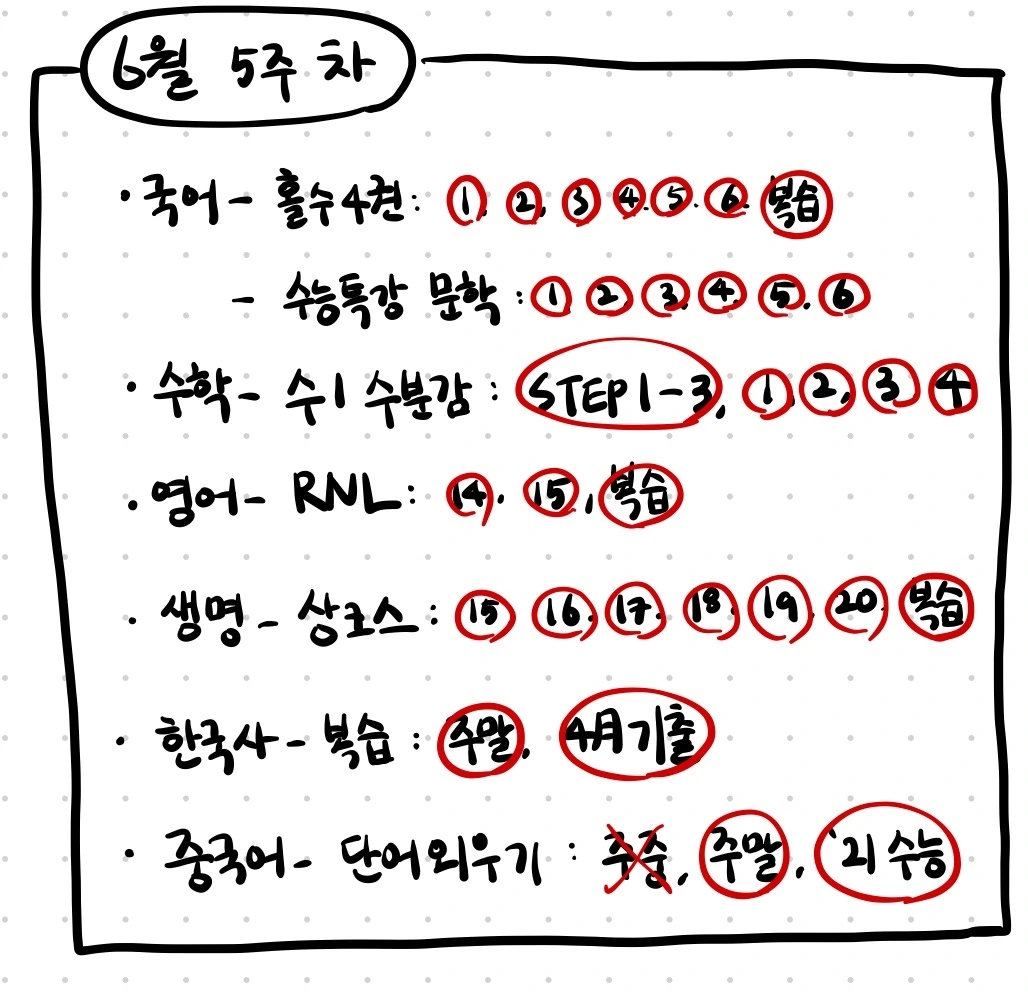 6월 5주차
· 국어 - 홀수 4권 : 1, 2, 3, 4. 5. 6. 복습
- 수능특강 문학 : 1 2 3. 4. 5. 6
· 수학 - 수1 수분감 : STEP 1-3, 1, 2, 3 4
· 영어 - RNL : 14. 15, 복습
· 생명 - 상크스 : 15 16. 17. 18. 19. 20. 복습
· 한국사 - 복습 : 주말, 4月 기출
· 중국어 - 단어외우기 : 주중, 주말, '21 수능